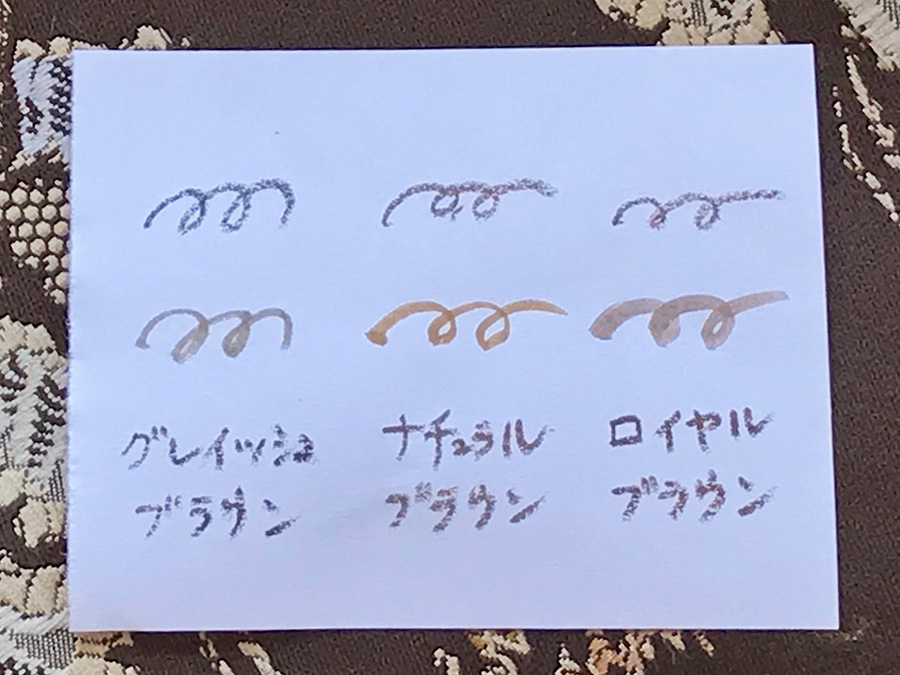 グレイッシュ ナチュラル ロイヤル
ブラウン ブラウン ブラウン